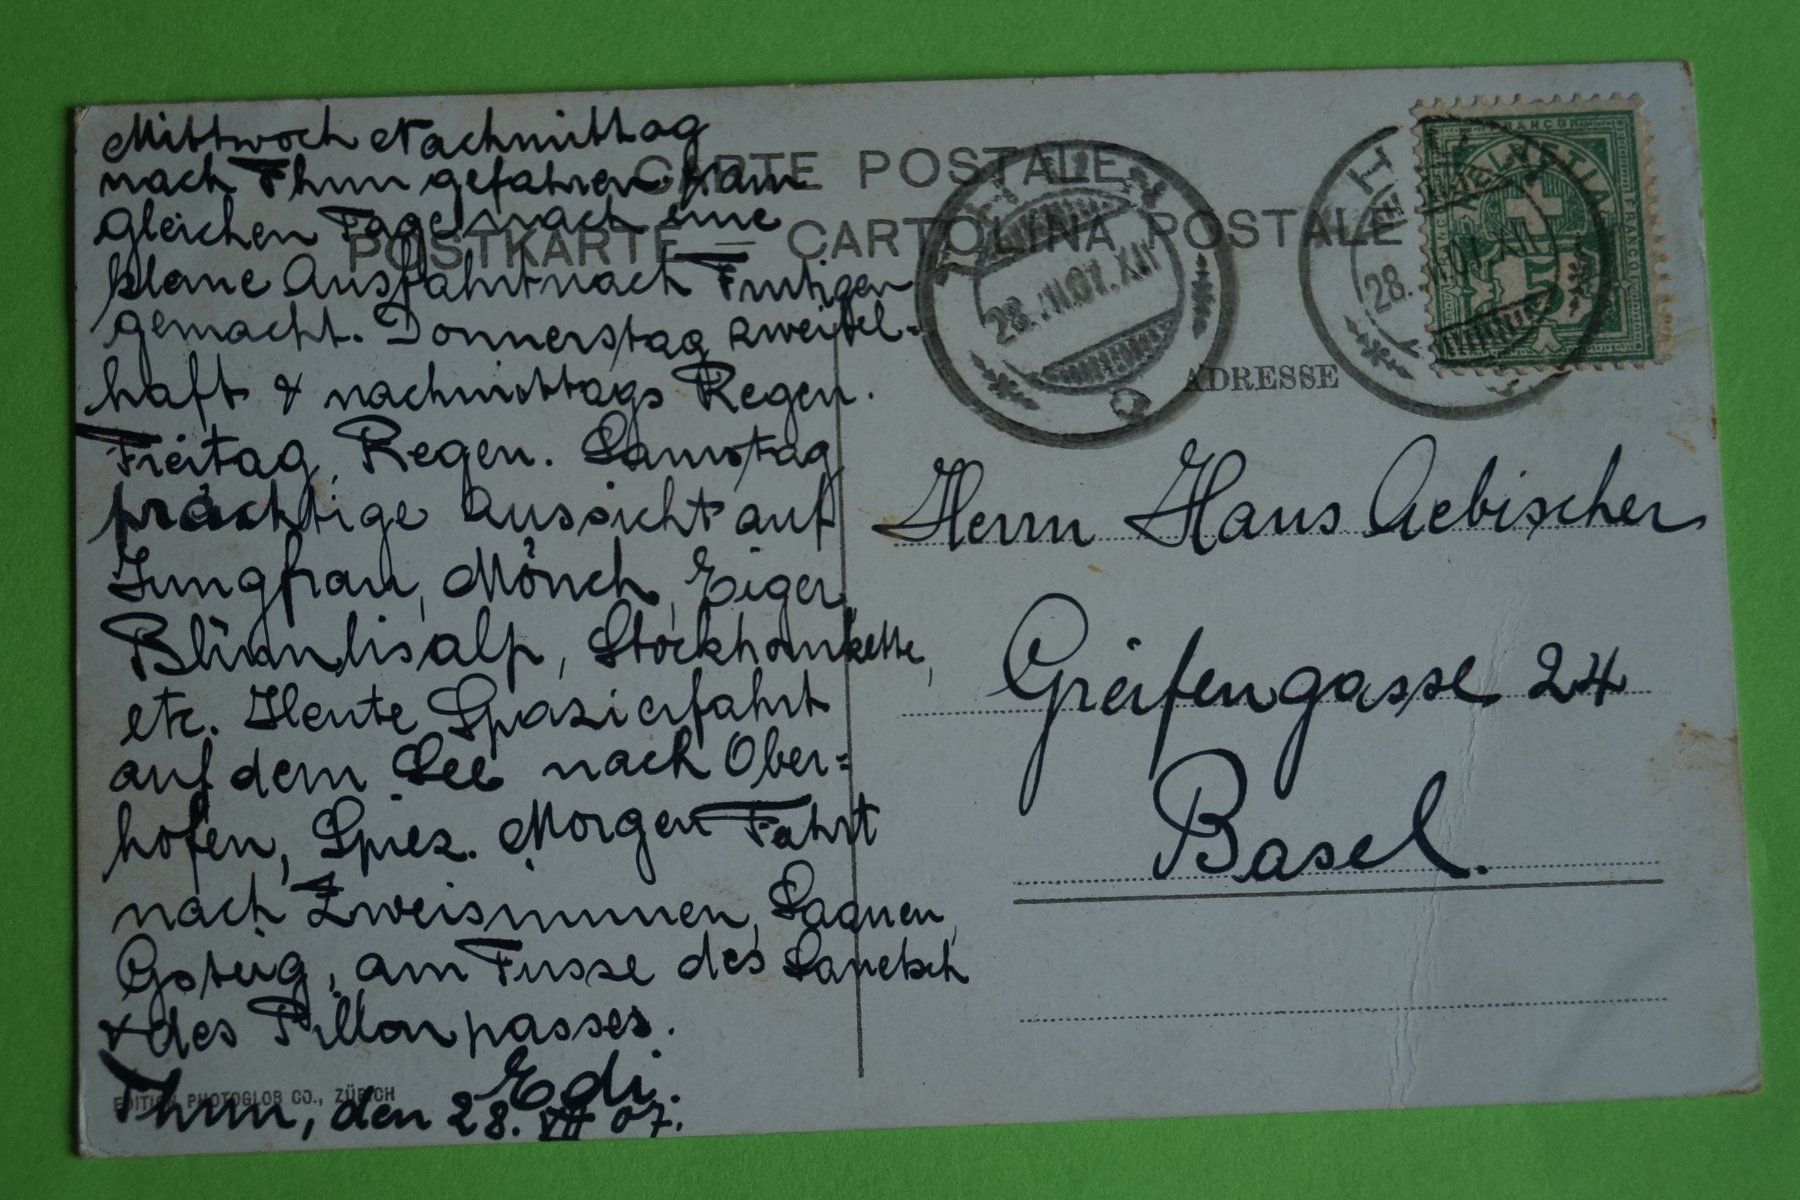 CARTE POSTALE
POSTKARTE — CARTOLINA POSTALE
Mittwoch Nachmittag
nach Thun gefahren & am
gleichen Tage nach eine
kleine Ausfahrt nach Frutigen
gemacht. Donnerstag zweifel-
haft & nachmittags Regen.
Freitag, Regen. Samstag
prächtige Aussicht auf
Jungfrau, Mönch, Eiger,
Blümlisalp, Stockhornkette,
etc. Heute Spazierfahrt
auf dem See nach Ober=
hofen, Spiez. Morgen Fahrt
nach Zweisimmen, Saanen,
Gsteig, am Fusse des Sanetsch
& des Pillonpasses.
Edi.
Thun, den 28. VII 07.
EDITION PHOTOGLOB CO., ZÜRICH
THUN
28. VII.07. XII
THUN
28. VII.07. XII
FRANCO
HELVETIA
5
ADRESSE
Herrn Hans Aebischer
Greifengasse 24
Basel.